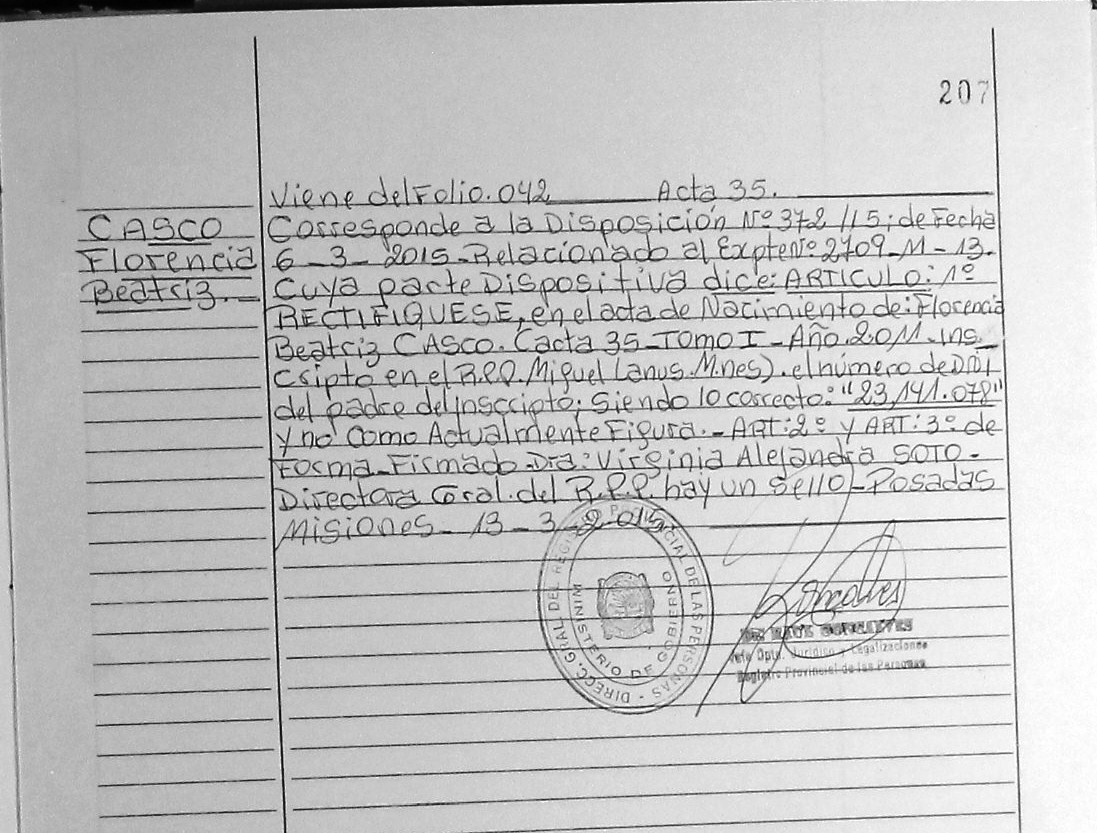 207
Viene del Folio. 042 Acta 35.
CASCO
Florencia
Beatriz.-
Corresponde a la Disposición Nº 372/15; de Fecha
6-3-2015-Relacionado al Expte Nº 2709-M-13.
Cuya parte Dispositiva dice: ARTICULO: 1º
RECTIFIQUESE, en el acta de Nacimiento de: Florencia
Beatriz CASCO. (acta 35-TOMO I-Año.2011-Ins
cripto en el R.P.P. Miguel Lanus.M.nes). el número de DNI
del padre del Inscripto; Siendo lo correcto: "23,141.078"
y no como Actualmente Figura.- ART: 2º y ART: 3º de
Forma-Firmado-Dra: Virginia Alejandra SOTO-
Directora Gral. del R.P.P. hay un Sello-Posadas
Misiones-13-3-2015
DIRECC. GRAL DEL REGISTRO PROVINCIAL DE LAS PERSONAS -
MINISTERIO DE GOBIERNO
GONCALVES
Jefe Dpto. Jurídico y Legalizaciones
Registro Provincial de las Personas